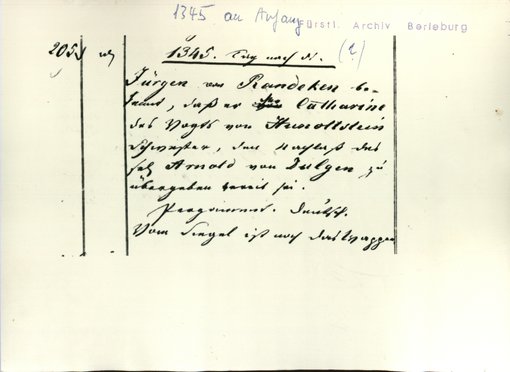 1345 am Anfang Fürstl. Archiv Berleburg
205
1345. Tag nach d. (?)
Jürgen von Randeken be-
kennt, daß er Catharine
des Vogts von Hunoltstein
Schwester, den Nachlaß des
Arnold von zu
übergeben bereit sei.
Pergament. Deutsch.
Vom Siegel ist noch das Wappen